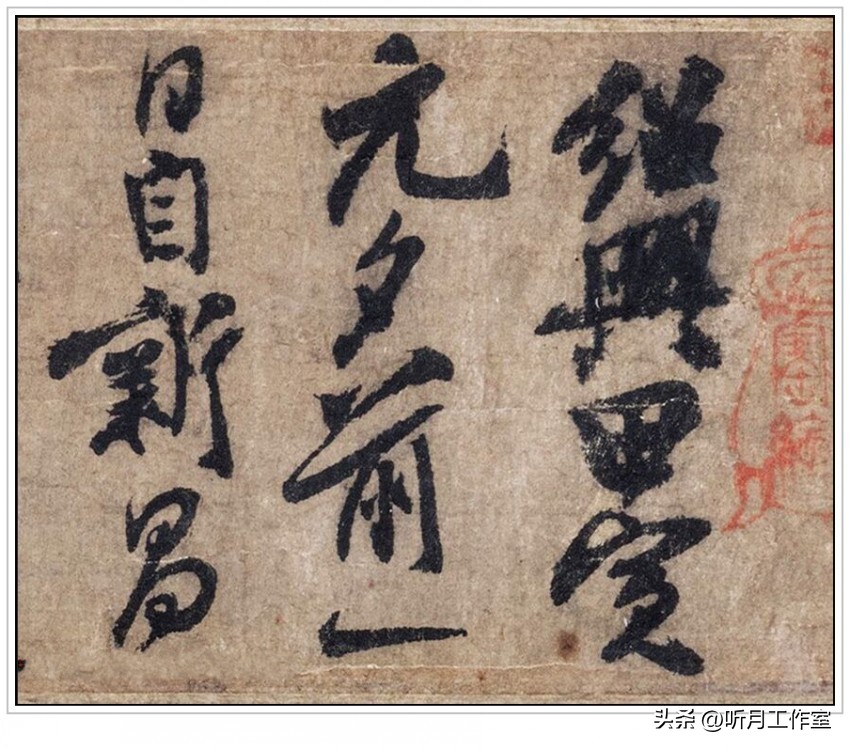 紹興甲寅
元夕前一
日自新昌
头条 @听月工作室